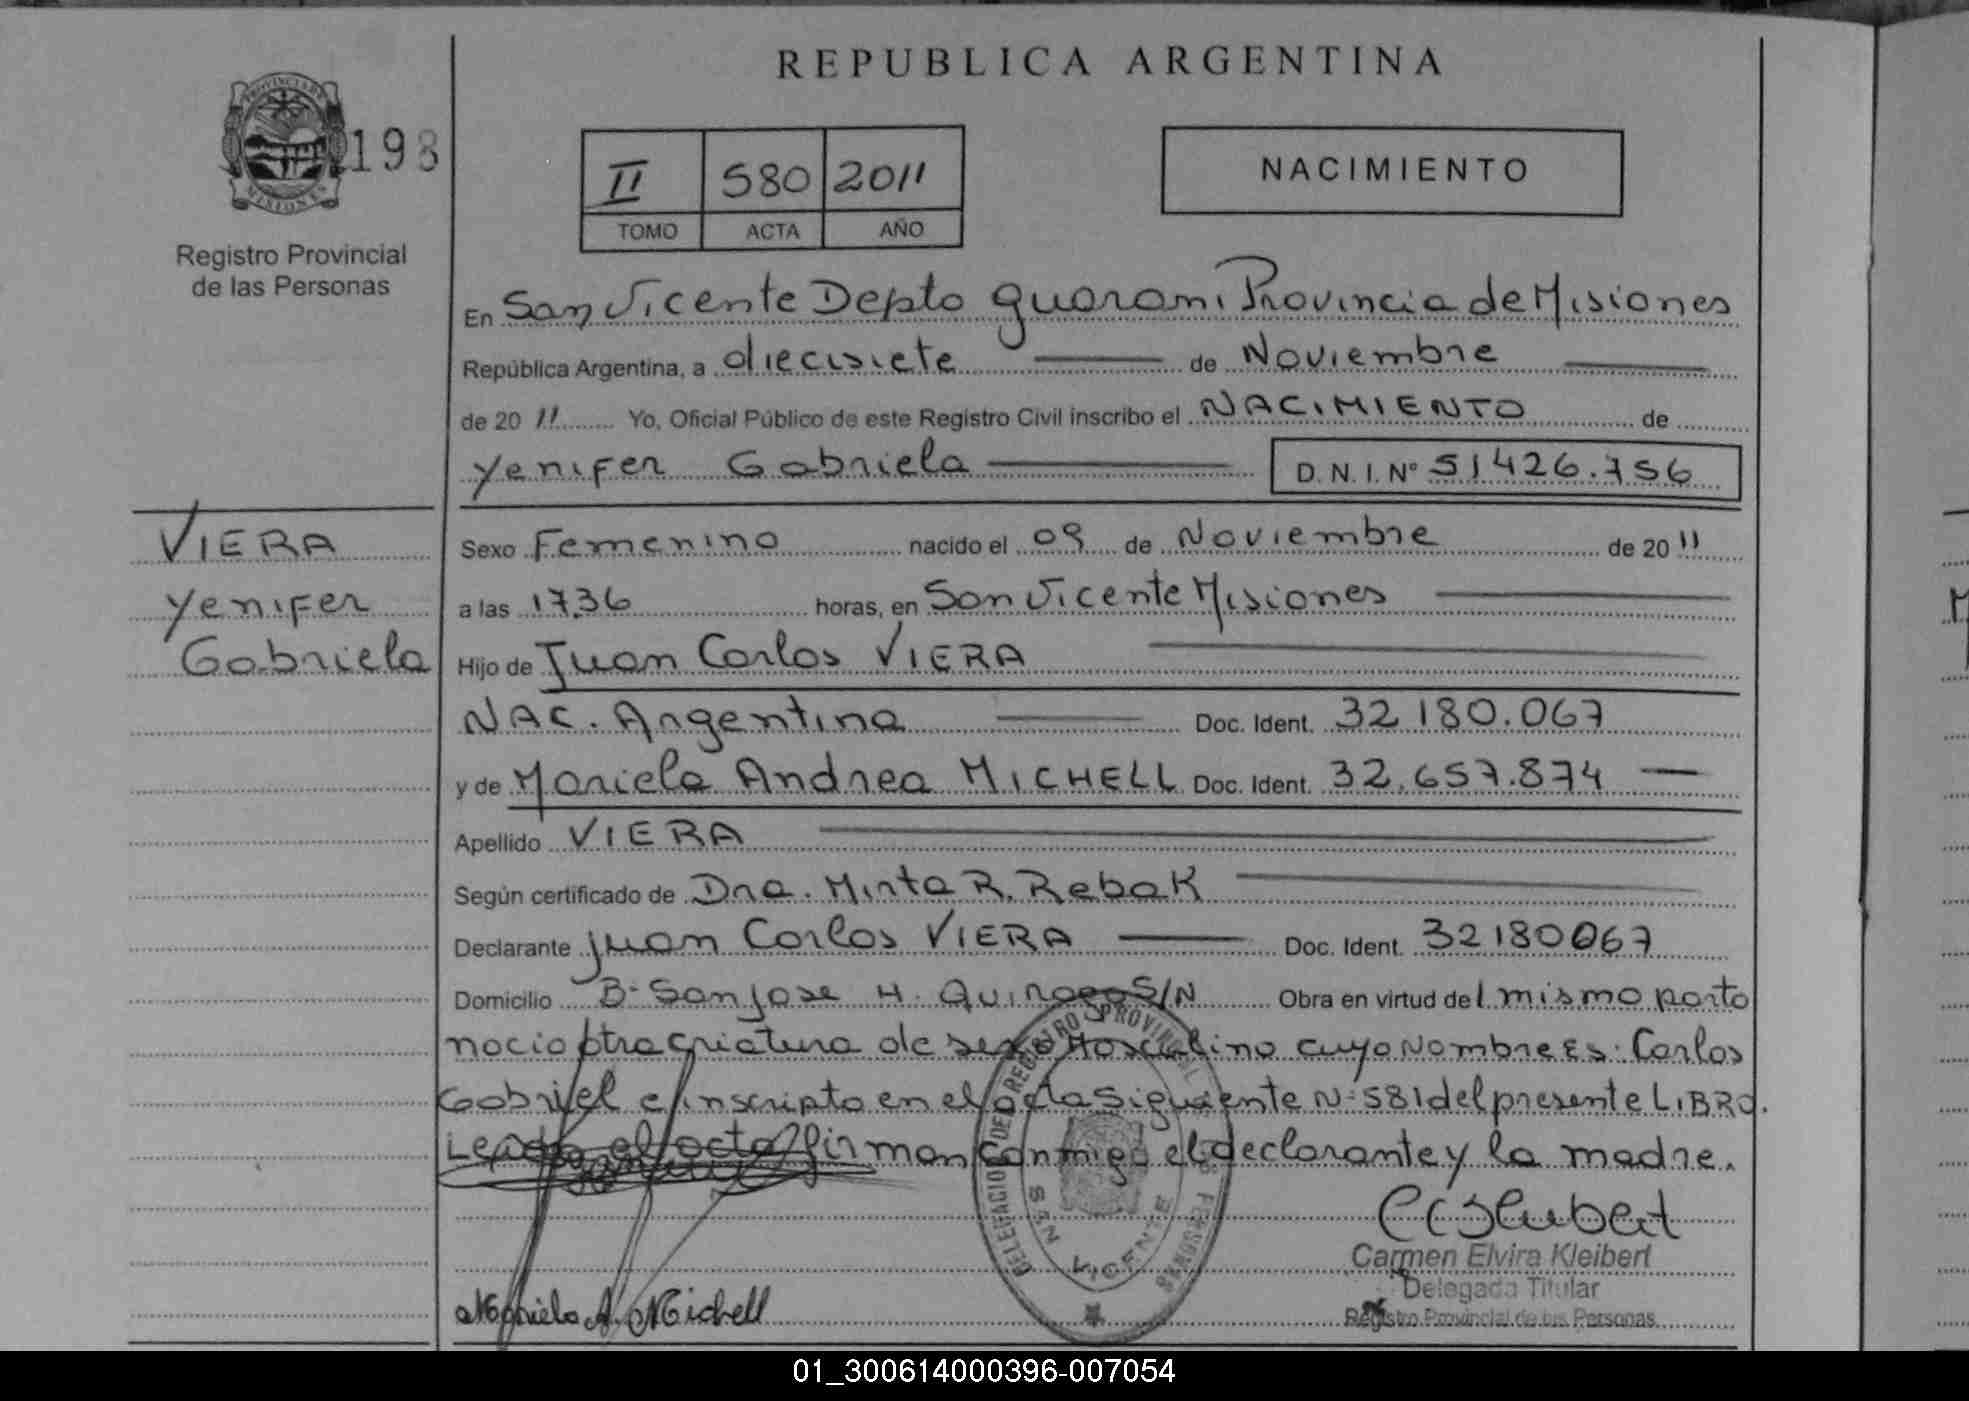 REPUBLICA ARGENTINA
PROVINCIA DE
MISIONES
198
Registro Provincial
de las Personas
II 580 2011
TOMO ACTA AÑO
NACIMIENTO
En San Vicente Depto Guarani Provincia de Misiones
República Argentina, a diecisiete de Noviembre
de 20 11 Yo, Oficial Público de este Registro Civil inscribo el NACIMIENTO de
Yenifer Gabriela D.N.I.Nº 51426.756
VIERA
Yenifer
Gabriela
Sexo Femenino nacido el 09 de Noviembre de 20 11
a las 17.36 horas, en San Vicente Misiones
Hijo de Juan Carlos VIERA
NAC. Argentina Doc. Ident. 32 180.067
y de Mariela Andrea MICHELL Doc. Ident. 32.657.874
Apellido VIERA
Según certificado de Dra. Mirta R. Rebak
Declarante Juan Carlos VIERA Doc. Ident. 32180067
Domicilio Bº San Jose H. Quiroga S/N Obra en virtud del mismo parto
nacio otra criatura de sexo Masculino cuyo Nombre es: Carlos
Gabriel e inscripto en el acta Siguiente Nº 581 del presente LIBRO.
Leida el acta firman conmigo el declarante y la madre.
DELEGACION DEL REGISTRO PROVINCIAL DE LAS PERSONAS
SAN VICENTE
Carmen Elvira Kleibert
Delegada Titular
Registro Provincial de las Personas
Mariela A. Michell
01_300614000396-007054